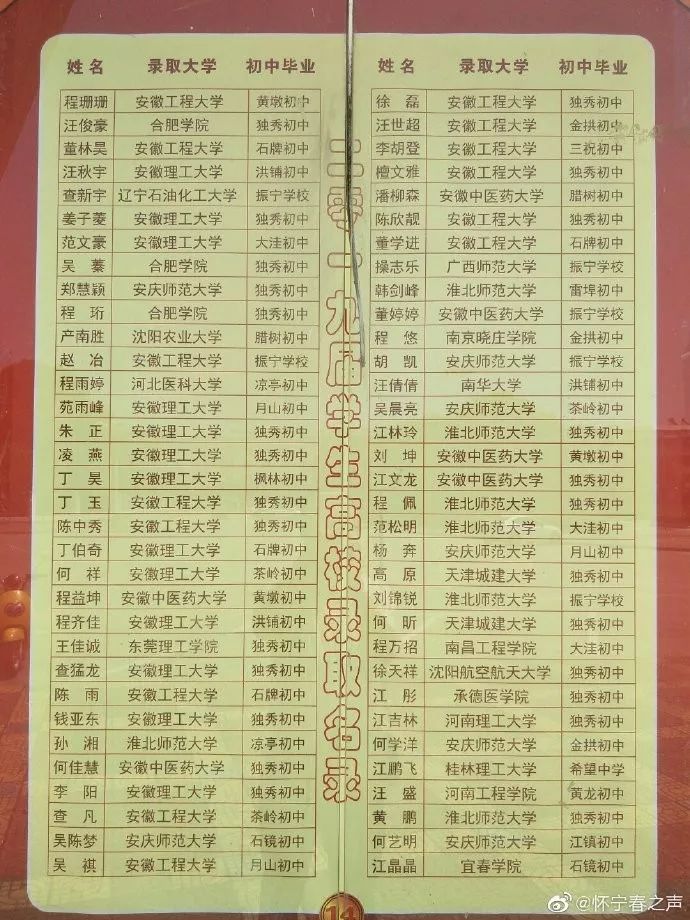 姓名 录取大学 初中毕业
程珊珊 安徽工程大学 黄墩初中
汪俊豪 合肥学院 独秀初中
董林昊 安徽工程大学 石牌初中
汪秋宇 安徽理工大学 洪铺初中
查新宇 辽宁石油化工大学 振宁学校
姜子菱 安徽理工大学 独秀初中
范文豪 安徽理工大学 大洼初中
吴蓁 合肥学院 独秀初中
郑慧颖 安庆师范大学 独秀初中
程珩 合肥学院 独秀初中
产南胜 沈阳农业大学 腊树初中
赵冶 安徽工程大学 振宁学校
程雨婷 河北医科大学 凉亭初中
苑雨峰 安徽理工大学 月山初中
朱正 安徽理工大学 独秀初中
凌燕 安徽理工大学 独秀初中
丁昊 安徽理工大学 枫林初中
丁玉 安徽工程大学 独秀初中
陈中秀 安徽工程大学 独秀初中
丁伯奇 安徽理工大学 石牌初中
何祥 安徽理工大学 茶岭初中
程益坤 安徽中医药大学 黄墩初中
程齐佳 安徽理工大学 洪铺初中
王佳诚 东莞理工学院 独秀初中
查猛龙 安徽理工大学 独秀初中
陈雨 安徽工程大学 石牌初中
钱亚东 安徽理工大学 独秀初中
孙湘 淮北师范大学 凉亭初中
何佳慧 安徽中医药大学 独秀初中
李阳 安徽理工大学 独秀初中
查凡 安徽理工大学 茶岭初中
吴陈梦 安庆师范大学 石镜初中
吴祺 安徽工程大学 月山初中
二零一九届学生高校录取名录
姓名 录取大学 初中毕业
徐磊 安徽工程大学 独秀初中
汪世超 安徽工程大学 金拱初中
李胡登 安徽工程大学 三祝初中
檀文雅 安徽工程大学 独秀初中
潘柳森 安徽中医药大学 腊树初中
陈欣靓 安徽工程大学 独秀初中
董学进 安徽工程大学 石牌初中
操志乐 广西师范大学 振宁学校
韩剑峰 淮北师范大学 雷埠初中
董婷婷 安徽中医药大学 振宁学校
程悠 南京晓庄学院 金拱初中
胡凯 安庆师范大学 振宁学校
汪倩倩 南华大学 洪铺初中
吴晨亮 安庆师范大学 茶岭初中
江林玲 淮北师范大学 独秀初中
刘坤 安徽中医药大学 黄墩初中
江文龙 安徽中医药大学 独秀初中
程佩 淮北师范大学 独秀初中
范松明 淮北师范大学 大洼初中
杨奔 安庆师范大学 月山初中
高原 天津城建大学 独秀初中
刘锦锐 淮北师范大学 振宁学校
何昕 天津城建大学 独秀初中
程万招 南昌工程学院 大洼初中
徐天祥 沈阳航空航天大学 独秀初中
江彤 承德医学院 独秀初中
江吉林 河南理工大学 独秀初中
何学洋 安庆师范大学 金拱初中
江鹏飞 桂林理工大学 希望中学
汪盛 河南工程学院 黄龙初中
黄鹏 淮北师范大学 独秀初中
何艺明 安庆师范大学 江镇初中
江晶晶 宜春学院 石镜初中
14
@怀宁春之声